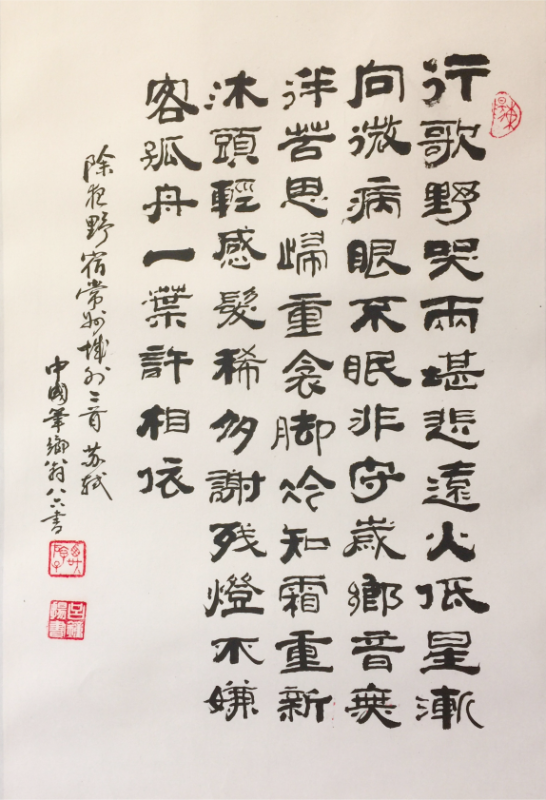 行歌野哭兩堪悲遠火低星漸
向微病眼不眠非守歲鄉音無
伴苦思歸重衾脚冷知霜重新
沐頭輕感髮稀多謝残燈不嫌
客孤舟一葉許相依
除夜野宿常州城外二首 苏轼
中國筆鄉翁八六书